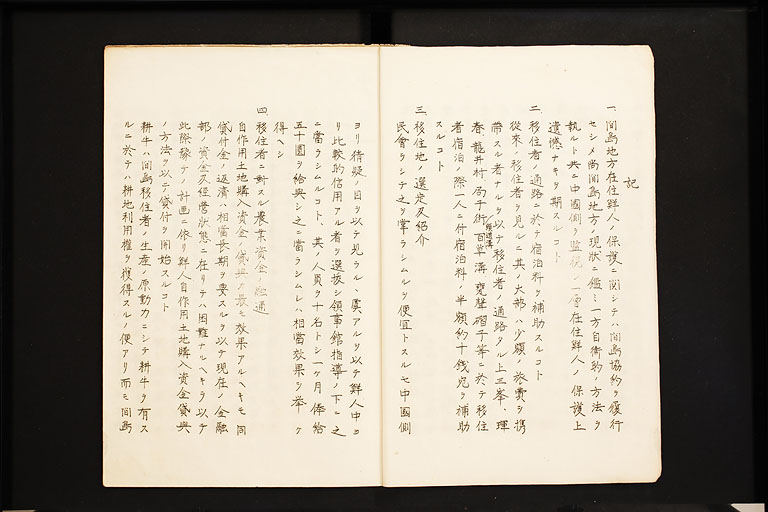 記
一、間島地方在住鮮人ノ保護ニ関シテハ間島協約ヲ履行
セシメ尚間島地方ノ現状ニ鑑ミ一方自衛的ノ方法ヲ
執ルト共ニ中國側ヲ監視シ一層在住鮮人ノ保護上
遺憾ナキヲ期スルコト
二、移住者ノ通路ニ於テ宿泊料ヲ補助スルコト
從來ノ移住者ヲ見ルニ其ノ大部ハ少額ノ旅費ヲ携
帶スル者ナルヲ以テ移住者ノ通路タル上三峯、琿
春、龍井村、局子街、百草溝、甕聲磖子等ニ於テ移住
者宿泊ノ際一人ニ付宿泊料ノ半額約十錢宛ヲ補助
スルコト
三、移住地ノ選定及紹介
民會ヲシテ之ヲ掌ラシムルヲ便宜トスルモ中國側
ヨリ猜疑ノ目ヲ以テ見ラル、虞アルヲ以テ鮮人中ヨ
リ比較的信用アル者ヲ選抜シ領事館指導ノ下ニ之
ニ當ラシムルコト、其ノ人員ヲ十名トシ一ケ月俸給
五十圓ヲ給與シ之ニ當ラシムレハ相當效果ヲ挙ケ
得ヘシ
四、移住者ニ對スル農業資金ノ融通
自作用土地購入資金ノ貸與ハ最モ效果アルヘキモ同
貸付金ノ返済ハ相當長期ヲ要スルヲ以テ現在ノ金融
部ノ資金及經營狀態ニ在リテハ困難ナルヘキヲ以テ
此際豫テノ計画ニ依リ鮮人自作用土地購入資金貸與
ノ方法ヲ以テ貸付ヲ開始スルコト
耕牛ハ間島移住者ノ生産ノ原動力ニシテ耕牛ヲ有ス
ルニ於テハ耕地利用權ヲ獲得スルノ便アリ而モ間島